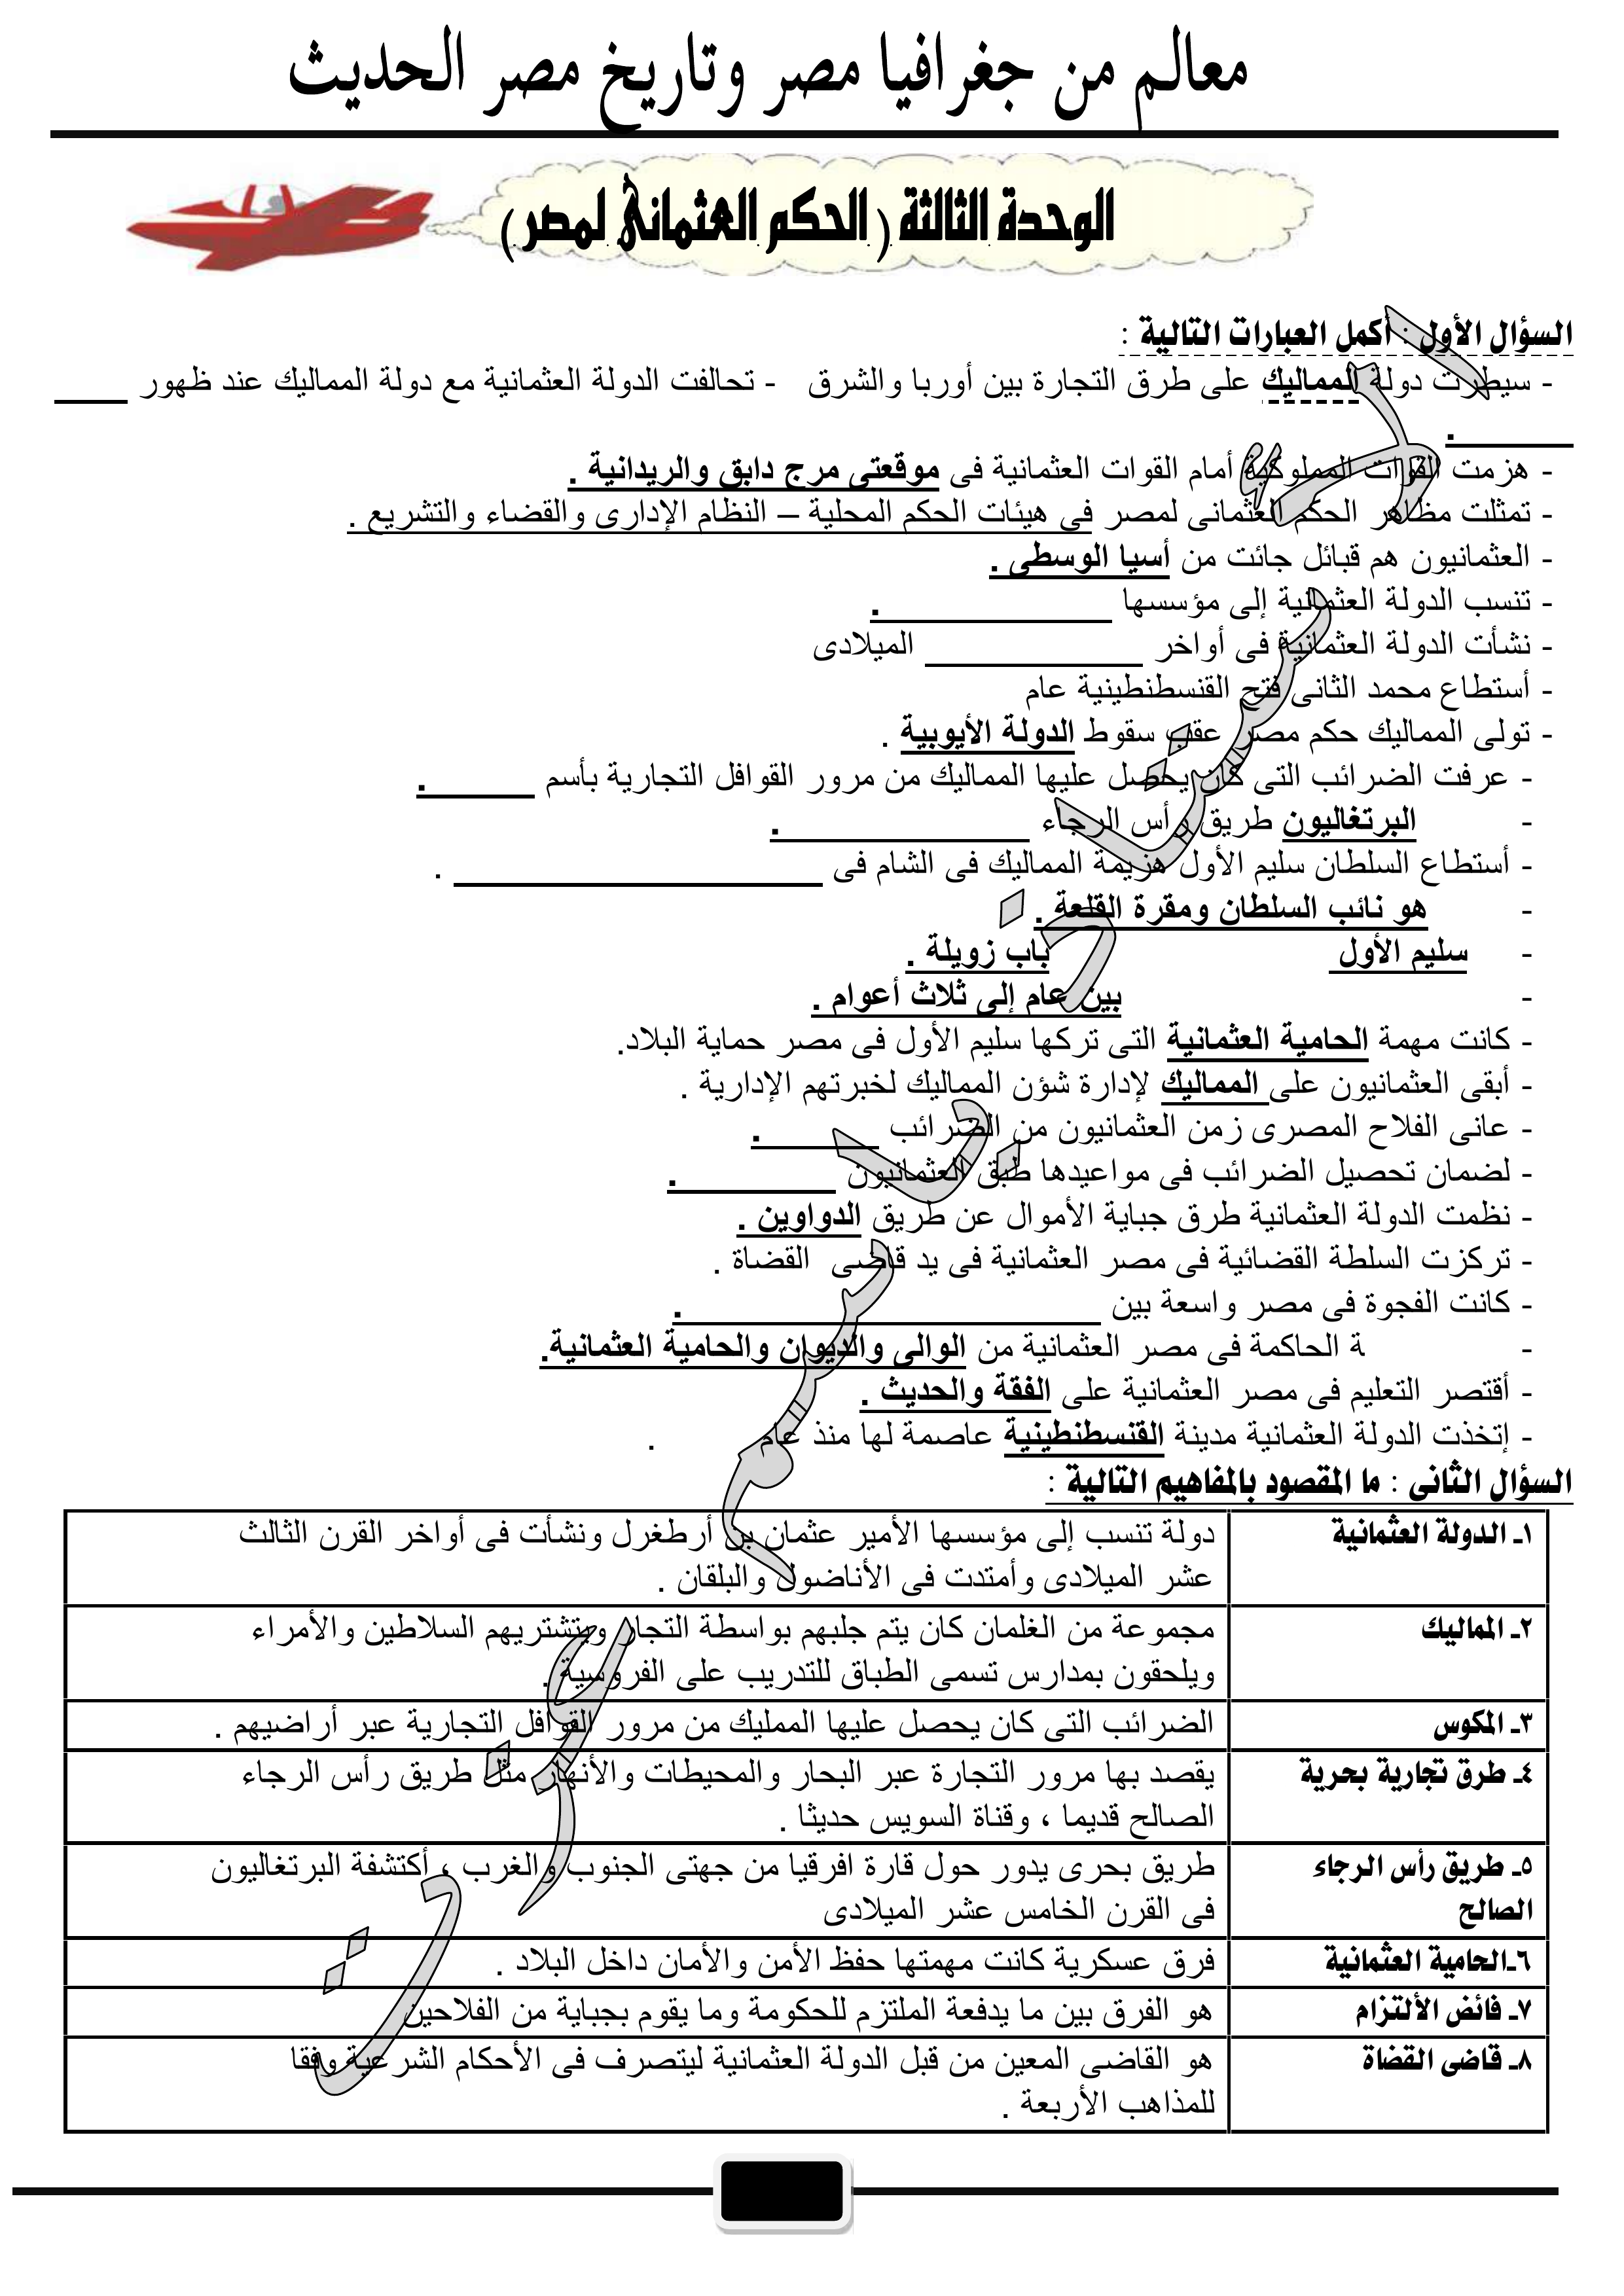 معالم من جغرافيا مصر وتاريخ مصر الحديث
الوحدة الثالثة ( الحكم العثمانى لمصر )
السؤال الأول : أكمل العبارات التالية :
- سيطرت دولة المماليك على طرق التجارة بين أوربا والشرق - تحالفت الدولة العثمانية مع دولة المماليك عند ظهور
.
- هزمت القوات المملوكية أمام القوات العثمانية فى موقعتى مرج دابق والريدانية .
- تمثلت مظاهر الحكم العثمانى لمصر فى هيئات الحكم المحلية – النظام الإدارى والقضاء والتشريع .
- العثمانيون هم قبائل جائت من أسيا الوسطى .
- تنسب الدولة العثمانية إلى مؤسسها .
- نشأت الدولة العثمانية فى أواخر الميلادى
- أستطاع محمد الثانى فتح القنسطنطينية عام
- تولى المماليك حكم مصر عقب سقوط الدولة الأيوبية .
- عرفت الضرائب التى كان يحصل عليها المماليك من مرور القوافل التجارية بأسم .
- البرتغاليون طريق رأس الرجاء .
- أستطاع السلطان سليم الأول هزيمة المماليك فى الشام فى .
- هو نائب السلطان ومقرة القلعة .
- سليم الأول باب زويلة .
- بين عام إلى ثلاث أعوام .
- كانت مهمة الحامية العثمانية التى تركها سليم الأول فى مصر حماية البلاد.
- أبقى العثمانيون على المماليك لإدارة شؤن المماليك لخبرتهم الإدارية .
- عانى الفلاح المصرى زمن العثمانيون من الضرائب .
- لضمان تحصيل الضرائب فى مواعيدها طبق العثمانيون .
- نظمت الدولة العثمانية طرق جباية الأموال عن طريق الدواوين .
- تركزت السلطة القضائية فى مصر العثمانية فى يد قاضى القضاة .
- كانت الفجوة فى مصر واسعة بين .
- ة الحاكمة فى مصر العثمانية من الوالى والديوان والحامية العثمانية.
- أقتصر التعليم فى مصر العثمانية على الفقة والحديث .
- إتخذت الدولة العثمانية مدينة القنسطنطينية عاصمة لها منذ عام .
السؤال الثانى : ما المقصود بالمفاهيم التالية :
١ـ الدولة العثمانية
دولة تنسب إلى مؤسسها الأمير عثمان بن أرطغرل ونشأت فى أواخر القرن الثالث
عشر الميلادى وأمتدت فى الأناضول والبلقان .
٢ـ المماليك
مجموعة من الغلمان كان يتم جلبهم بواسطة التجار ويتشتريهم السلاطين والأمراء
ويلحقون بمدارس تسمى الطباق للتدريب على الفروسية .
٣ـ المكوس
الضرائب التى كان يحصل عليها المmليك من مرور القوافل التجارية عبر أراضيهم .
٤ـ طرق تجارية بحرية
يقصد بها مرور التجارة عبر البحار والمحيطات والأنهار مثل طريق رأس الرجاء
الصالح قديما ، وقناة السويس حديثا .
٥ـ طريق رأس الرجاء
الصالح
طريق بحرى يدور حول قارة افرقيا من جهتى الجنوب والغرب ، أكتشفة البرتغاليون
فى القرن الخامس عشر الميلادى
٦ـالحامية العثمانية
فرق عسكرية كانت مهمتها حفظ الأمن والأمان داخل البلاد .
٧ـ فائض الألتزام
هو الفرق بين ما يدفعة الملتزم للحكومة وما يقوم بجباية من الفلاحين
٨ـ قاضى القضاة
هو القاضى المعين من قبل الدولة العثمانية ليتصرف فى الأحكام الشرعية وفقا
للمذاهب الأربعة .